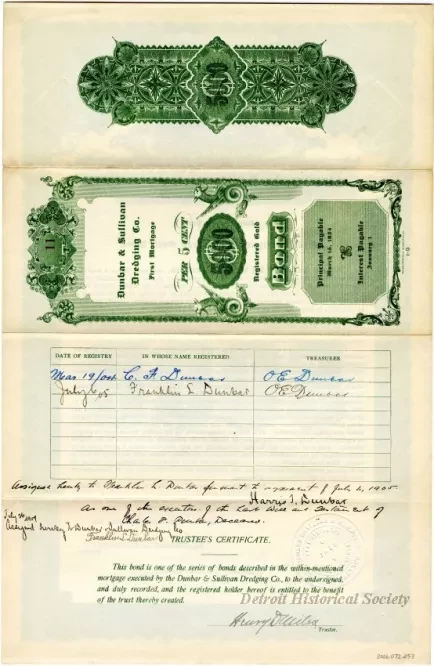 5000
11
Dunbar & Sullivan
Dredging Co.
First Mortgage
PER 5 CENT
5000
Registered Gold
Bond
Principal Payable
March 15, 1924
Interest Payable
January 1
DATE OF REGISTRY
IN WHOSE NAME REGISTERED
TREASURER
Mar 19/04 C. F. Dunbar OE Dunbar
July 6 05 Franklin L Dunbar OE Dunbar
Assigned hereby to Franklin L. Dunbar pursuant to agreement of July 6, 1905
Harris T. Dunbar
As one of the executors of the Last Will and Testament of
Charles F. Dunbar, Deceased.
Assigned hereby to Dunbar & Sullivan Dredging Co
Franklin L Dunbar
TRUSTEE'S CERTIFICATE.
This bond is one of the series of bonds described in the within-mentioned
mortgage executed by the Dunbar & Sullivan Dredging Co., to the undersigned,
and duly recorded, and the registered holder hereof is entitled to the benefit
of the trust thereby created.
Detroit Historical Society
Henry
Trustee.